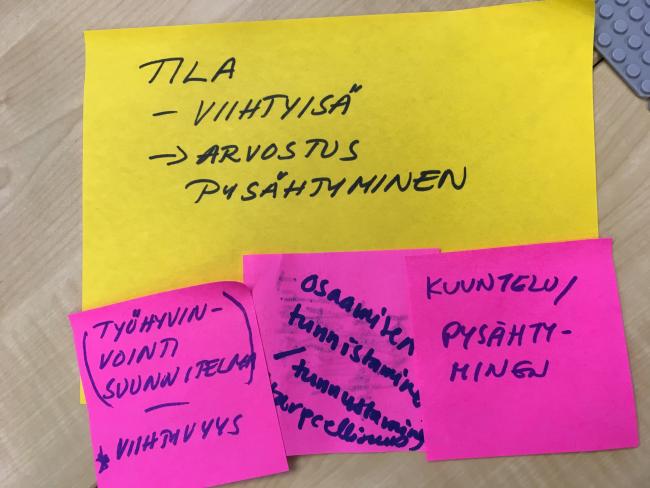 TILA
- VIIHTYISÄ
→ ARVOSTUS
PYSÄHTYMINEN
(TYÖHYVIN-
VOINTI
SUUNNITELMA)
* VIIHTYVYYS
osaamisen
tunnistaminen
/ tunnustaminen
tarpeellisuus
KUUNTELU/
PYSÄHTY-
MINEN